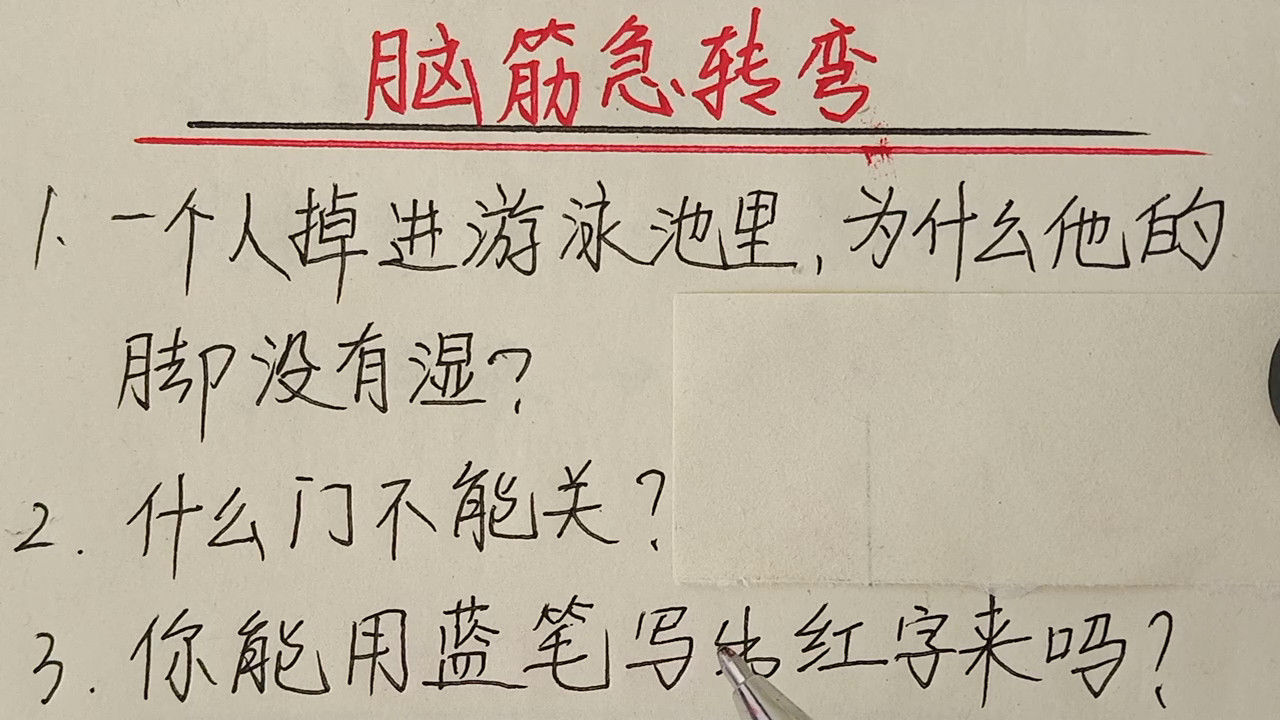 脑筋急转弯
1. 一个人掉进游泳池里,为什么他的
脚没有湿?
2. 什么门不能关?
3. 你能用蓝笔写出红字来吗?